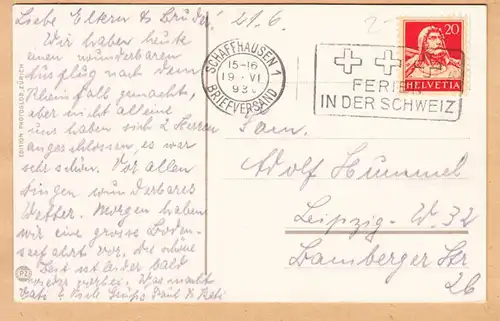 Liebe Eltern & Bruder! 21.6.
Wir haben heute
einen wunderbaren
Ausflug nach dem
Rheinfall gemacht,
aber nicht alleine,
uns haben sich 2 Herren
angeschlossen, es war
sehr schön. Vor allen
Dingen wunderbares
Wetter. Morgen haben
wir eine grosse Boden-
seefahrt vor. Die schöne
Zeit ist leider bald
wieder vorbei. Was macht
Grüße Paul &
EDITION PHOTOGLOB, ZÜRICH
PZ
SCHAFFHAUSEN 1
15-16
19. VI
BRIEFVERSAND
FERIEN
IN DER SCHWEIZ
20
HELVETIA
Fam.
Adolf Hummel
Leipzig-W. 32
Bamberger Str
26